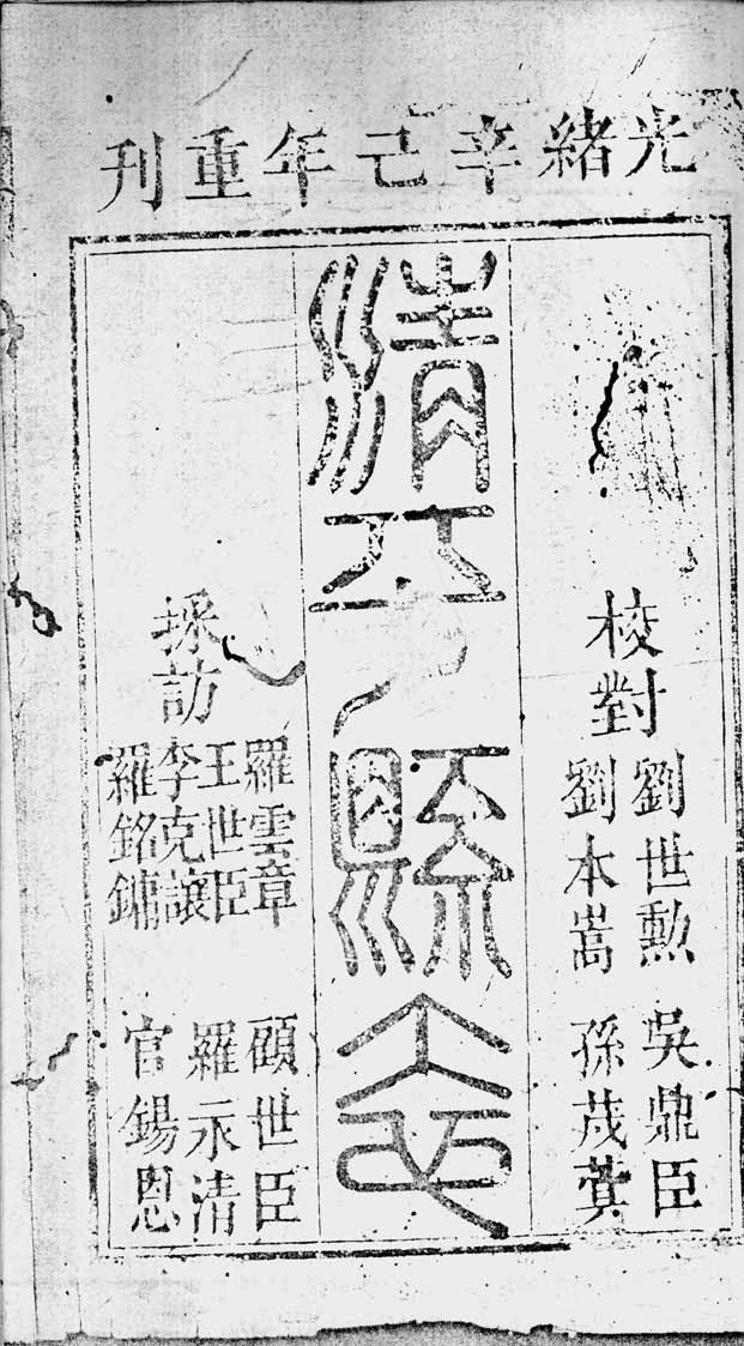 光緒辛巳年重刊
校對
劉世勲 吳鼎臣
劉本嵩 孫茂蓂
清平縣志
採訪
羅雲章 顧世臣
王世臣 羅永清
李克讓
羅銘鏞 官錫恩